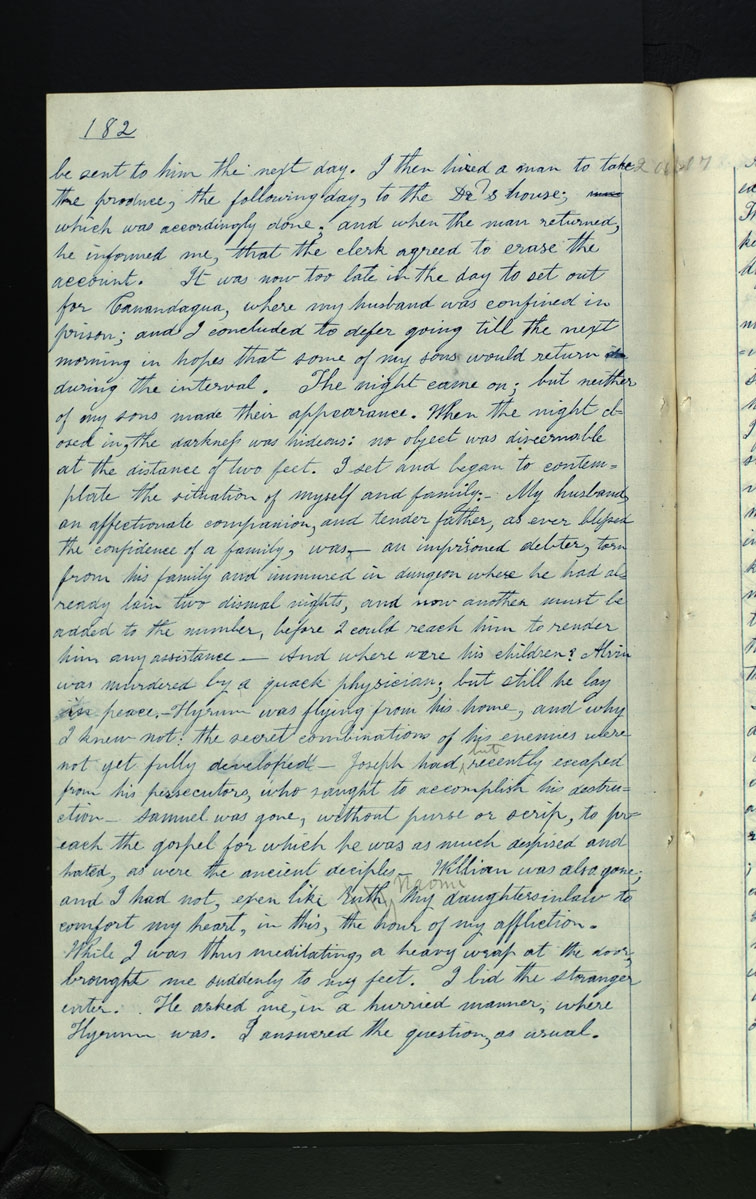 182
be sent to him the next day. I then hired a man to take
the produce, the following day, to the Dr's house;
which was accordingly done; and when the man returned,
he informed me, that the clerk agreed to erase the
account. It was now too late in the day to set out
for Canandagua, where my husband was confined in
prison; and I concluded to defer going till the next
morning in hopes that some of my sons would return
during the interval. The night came on; but neither
of my sons made their appearance. When the night cl-
osed in, the darkness was hideous: no object was discernable
at the distance of two feet. I set and began to contem=
plate the situation of myself and family:- My husband,
an affectionate companion, and tender father, as ever blessed
the confidence of a family, was,— an imprisoned debtor, torn
from his family and immured in dungeon where he had al=
ready lain two dismal nights, and now another must be
added to the number, before I could reach him to render
him any assistance — And where were his children? Alvin
was murdered by a quack physician; but still he lay
in peace.— Hyrum was flying from his home, and why
I knew not: the secret combinations of his enemies were
not yet fully developed — Joseph had, but recently escaped
from his persecutors, who saught to accomplish his destru=
ction — Samuel was gone, without purse or scrip, to pr=
each the gospel for which he was as much despised and
hated, as were the ancient deciples — William was also gone;
Naomi
and I had not, even like Ruth, My daughtersinlaw to
comfort my heart, in this, the hour of my affliction.
While I was thus meditating, a heavy wrap at the door,
brought me suddenly to my feet. I bid the stranger
enter. He asked me, in a hurried manner, where
Hyrum was. I answered the question, as usual.